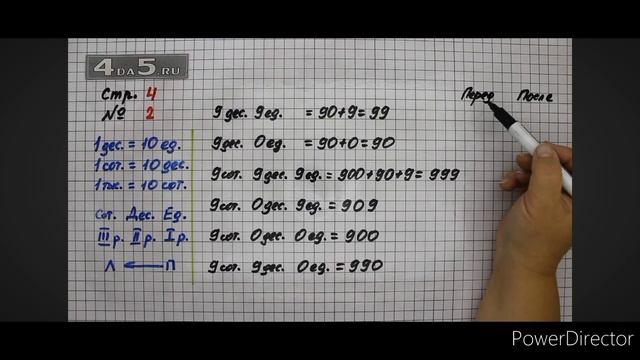 4DA5.RU
Стр. 4
№ 2
Перед После
9 дес. 9 ед. = 90+9=99
9 дес. 0 ед. = 90+0=90
9 сот. 9 дес. 9 ед. = 900+90+9= 999
9 сот. 0 дес. 9 ед. = 909
9 сот. 0 дес. 0 ед. = 900
9 сот. 9 дес. 0 ед. = 990
1 дес. = 10 ед.
1 сот. = 10 дес.
1 тыс. = 10 сот.
Сот. Дес. Ед.
III р. II р. I р.
Л ← П
PowerDirector